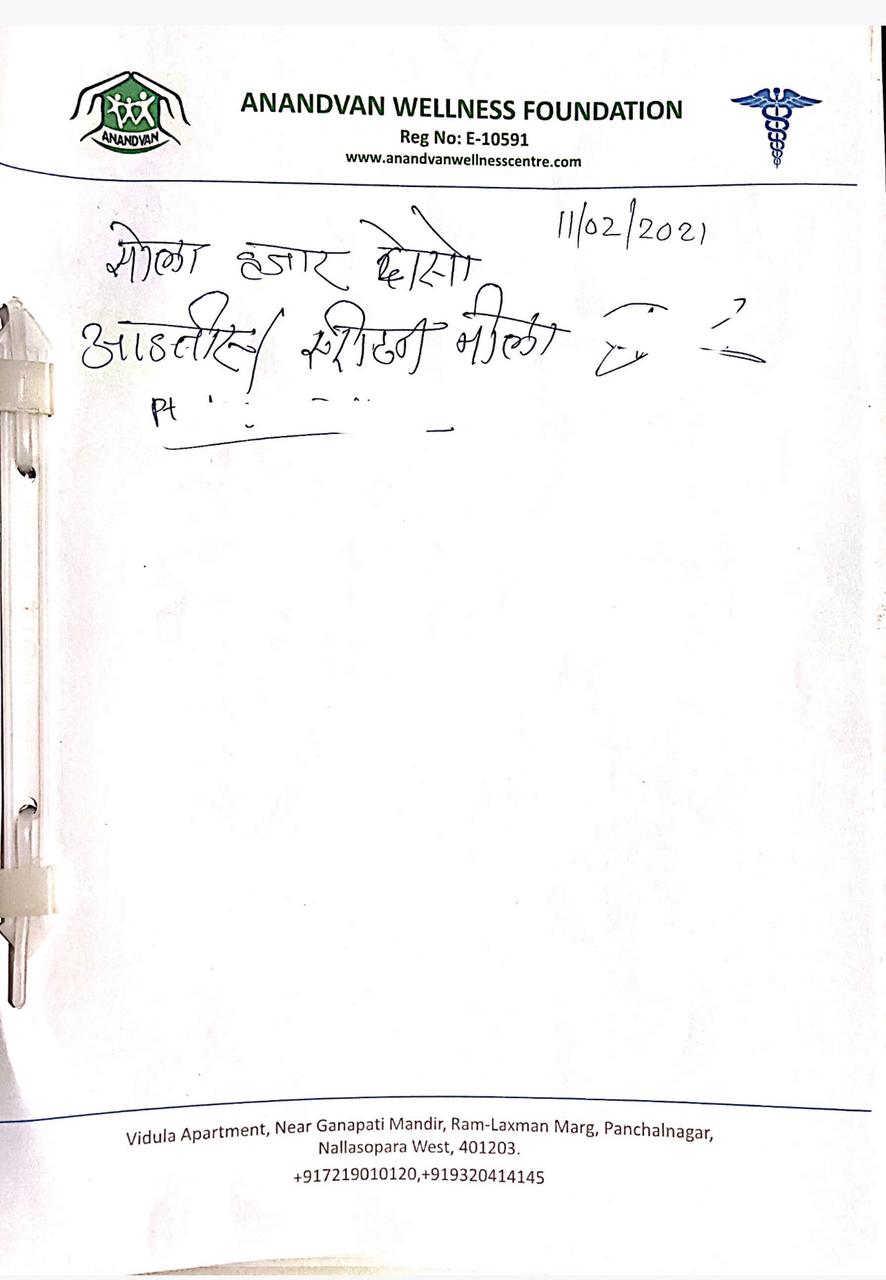 ANANDVAN
ANANDVAN WELLNESS FOUNDATION
Reg No: E-10591
www.anandvanwellnesscentre.com
11/02/2021
सोला हजार दोसो
आडतीस/ रीटन मीला
Pt
Vidula Apartment, Near Ganapati Mandir, Ram-Laxman Marg, Panchalnagar,
Nallasopara West, 401203.
+917219010120,+919320414145